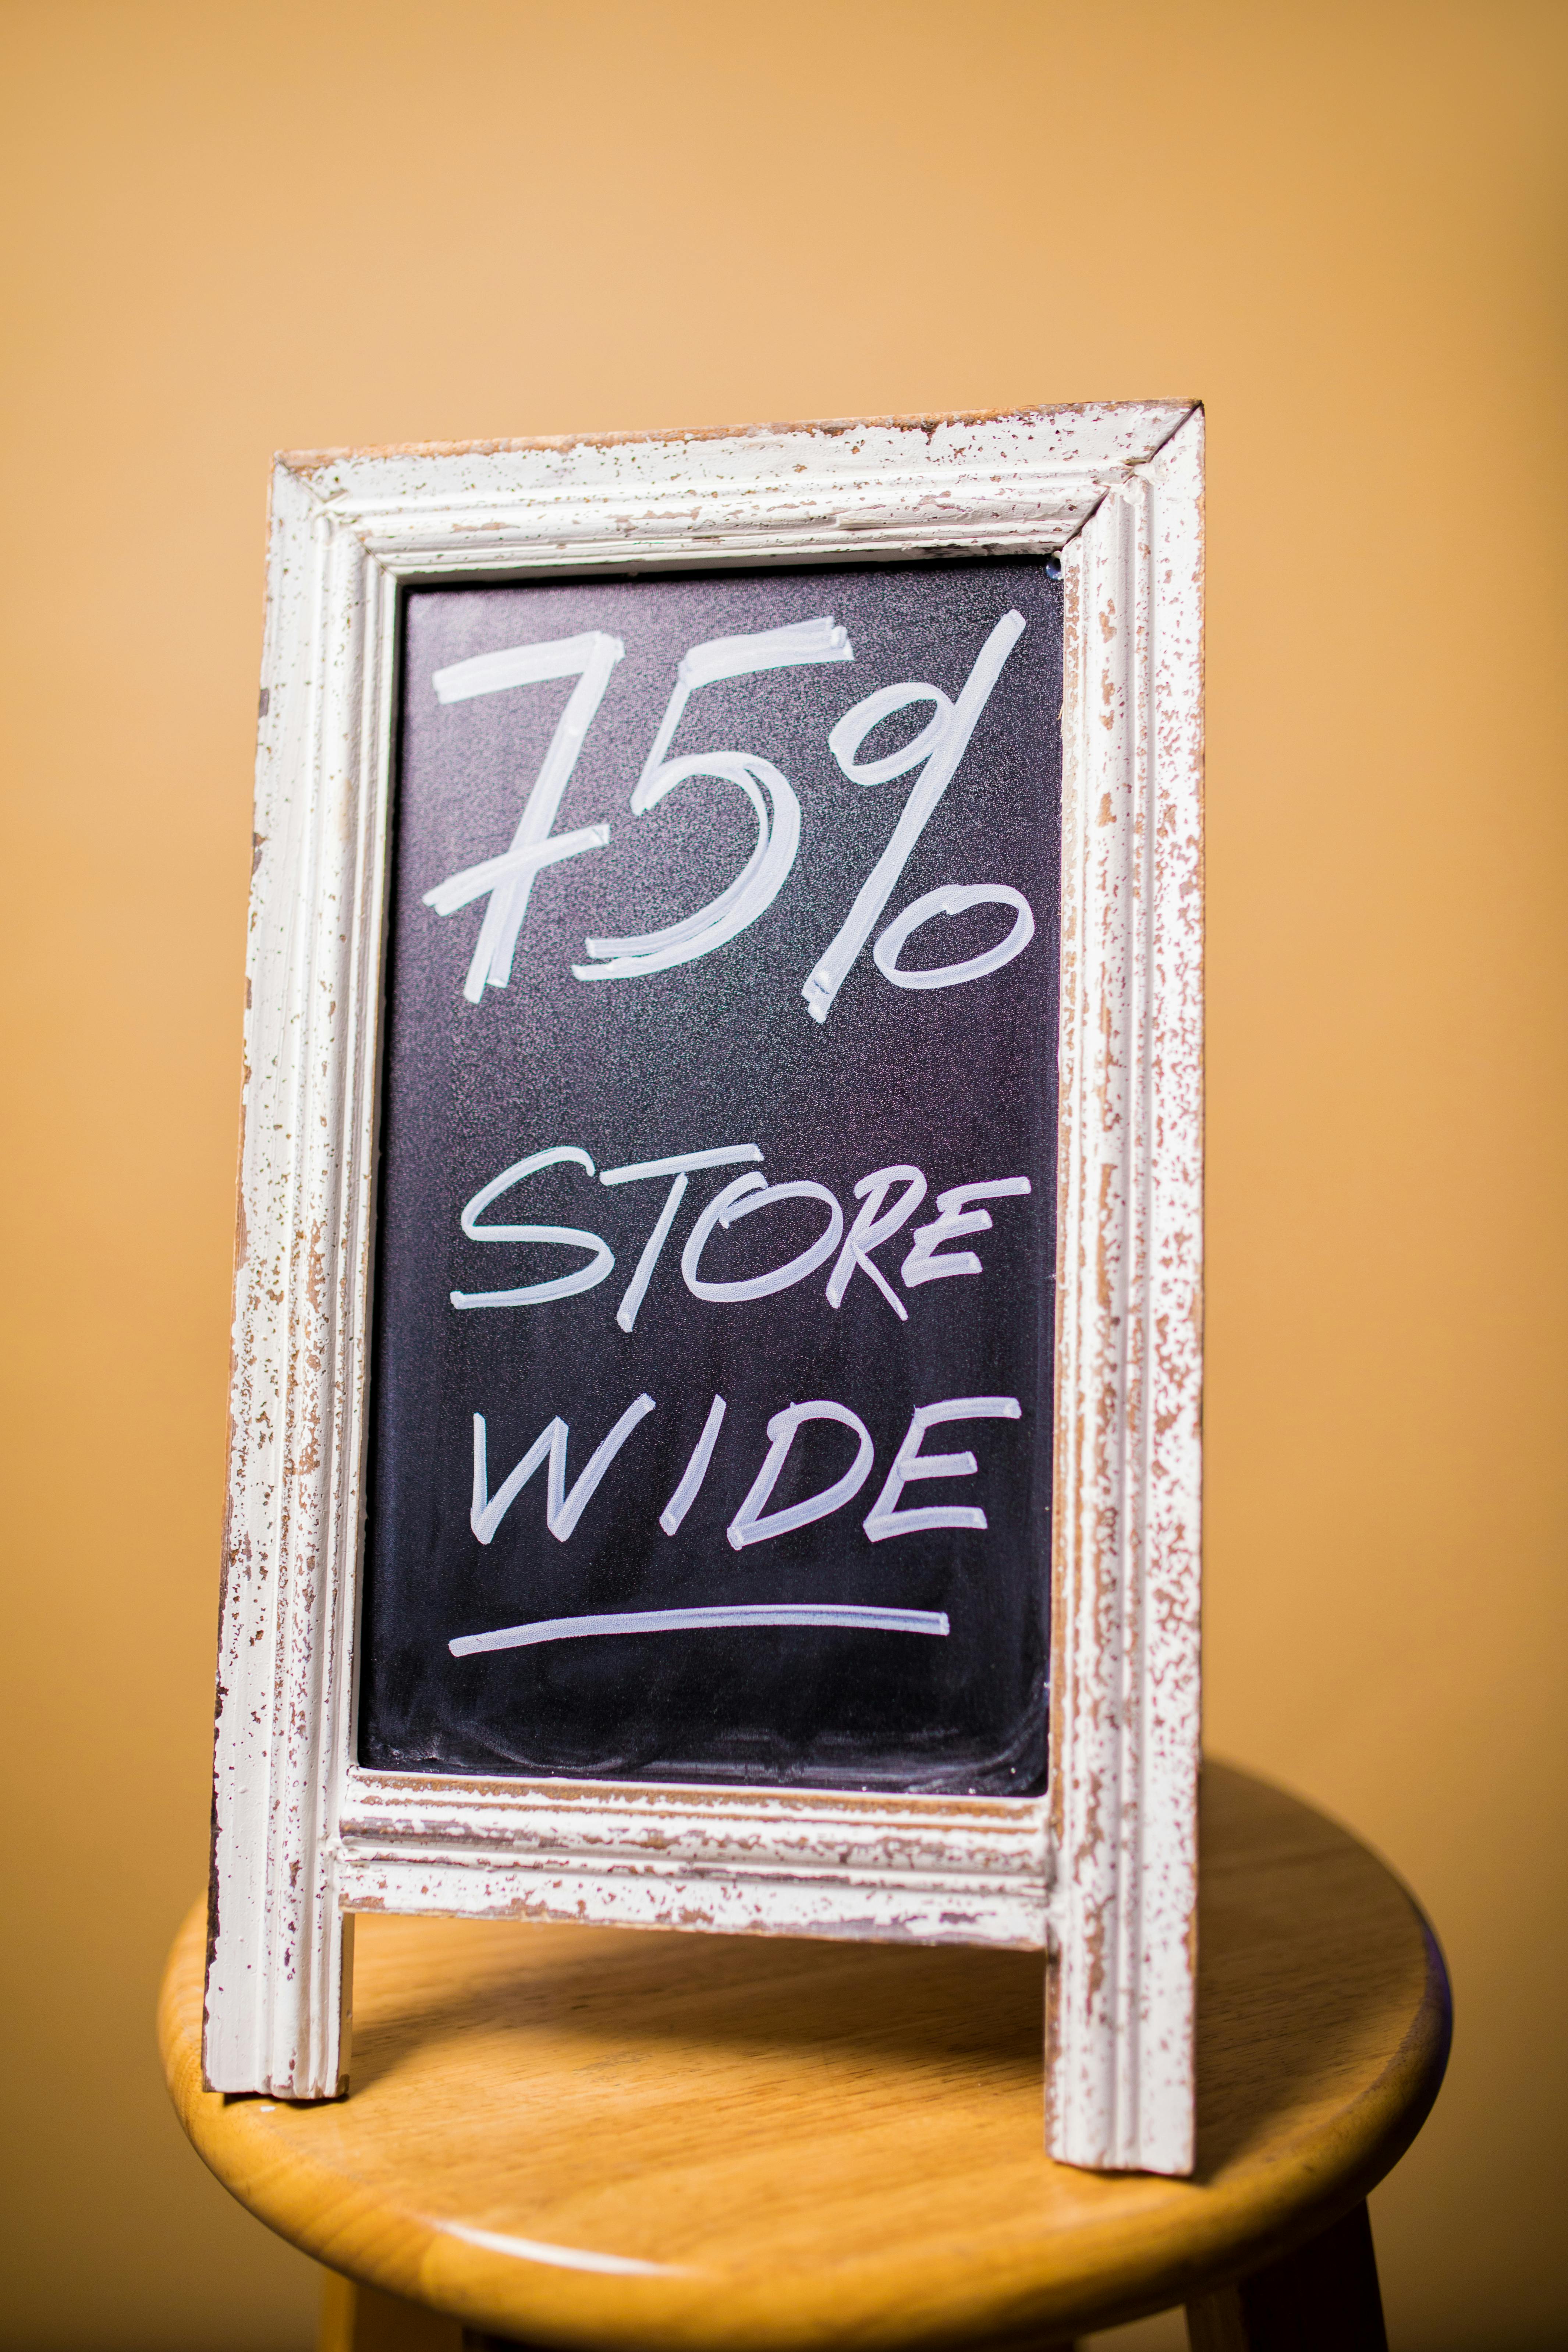 75%
STORE
WIDE